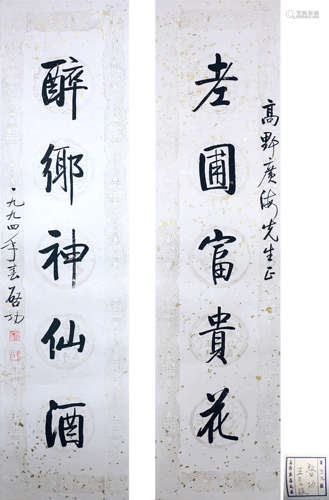 高野廣海先生正
老圃富貴花
醉鄉神仙酒
一九九四年春启功